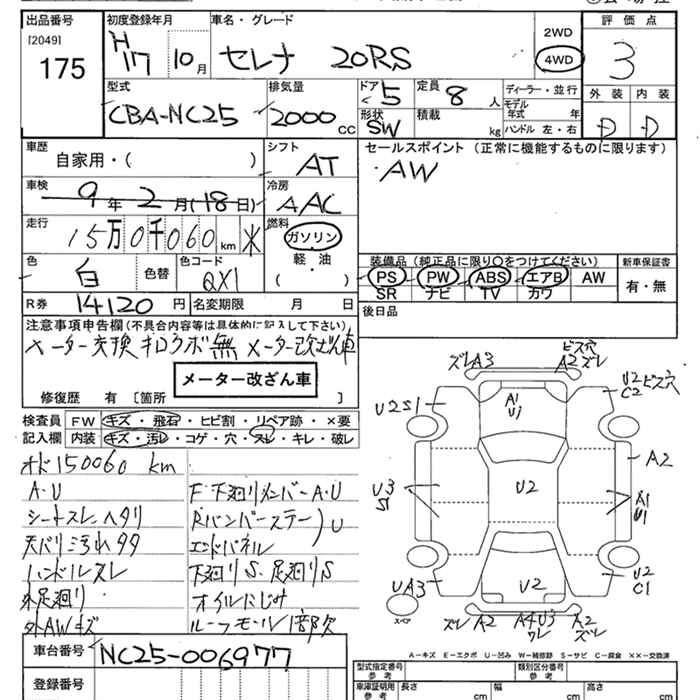 出品番号
[2049]
175
初度登録年月
H17 10月
車名・グレード
セレナ 20RS
2WD
4WD
評価点
3
外装 内装
D D
型式
CBA-NC25
排気量
2000 CC
ドア
5
形状
SW
定員
8 人
積載
kg
ディーラー・並行
モデル
年式 年
ハンドル 左・右
車歴
自家用・( )
シフト
AT
セールスポイント (正常に機能するものに限ります)
AW
車検
9年2月(18日)
冷房
AAC
走行
15万0千060 km
燃料
ガソリン
軽・油
( )
色
白
色替
色コード
QX1
装備品 (純正品に限り○をつけてください)
PS PW ABS エアB AW
SR ナビ TV カワ
新車保証書
有・無
R券 14120 円
名変期限 月 日
後日品
注意事項申告欄 (不具合内容等は具体的に記入して下さい)
メーター交換キロクボ無 メーター改ざん車
メーター改ざん車
修復歴 有 [箇所 ]
検査員 FW キズ・飛石・ヒビ割・リペア跡・×要
記入欄 内装 キズ・汚レ・コゲ・穴・スレ・キレ・破レ
オド150060 km
A・U
シートスレ ヘタリ
天バリ汚れタタ
ハンドルスレ
外足廻り
外AWキズ
F・下廻りメンバーA・U
Rバンパーステー
エンドパネル
U
下廻りS、足廻りS
オイルにじみ
ルーフモール1部欠
ズレA3
ビス穴
A2ズレ
U2S1
A1
U1
U2ビス穴
C2
A2
U3
S1
U2
A1
U1
UA3
U2
U2
C1
スペア
ズレ A2
A4U3
ワレ
A2
ズレ
A-キズ E-エクボ U-凹み W-補修跡 S-サビ C-腐食 ××-交換済
車台番号 NC25-006977
登録番号
型式指定番号
参考
類別区分番号
参考
車庫証明用
参考
長さ cm
幅 cm
高さ cm